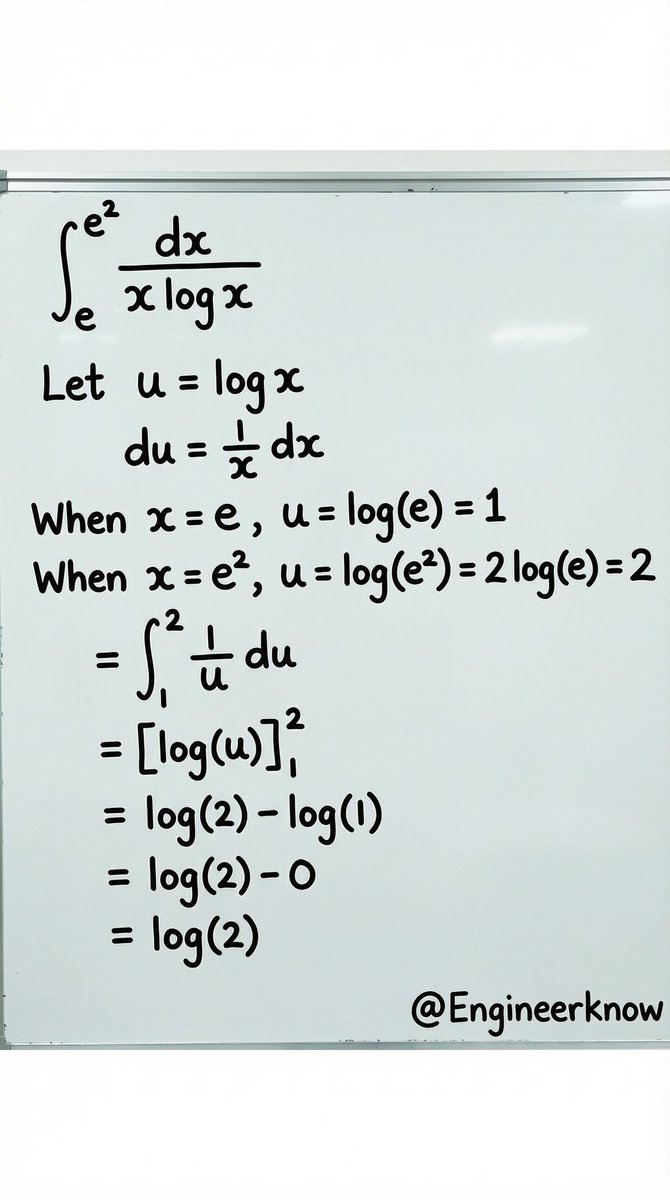 ∫ₑ^{e²} dx / (x log x)
Let u = log x
du = 1/x dx
When x = e, u = log(e) = 1
When x = e², u = log(e²) = 2 log(e) = 2
= ∫₁² 1/u du
= [log(u)]₁²
= log(2) − log(1)
= log(2) − 0
= log(2)
@Engineerknow